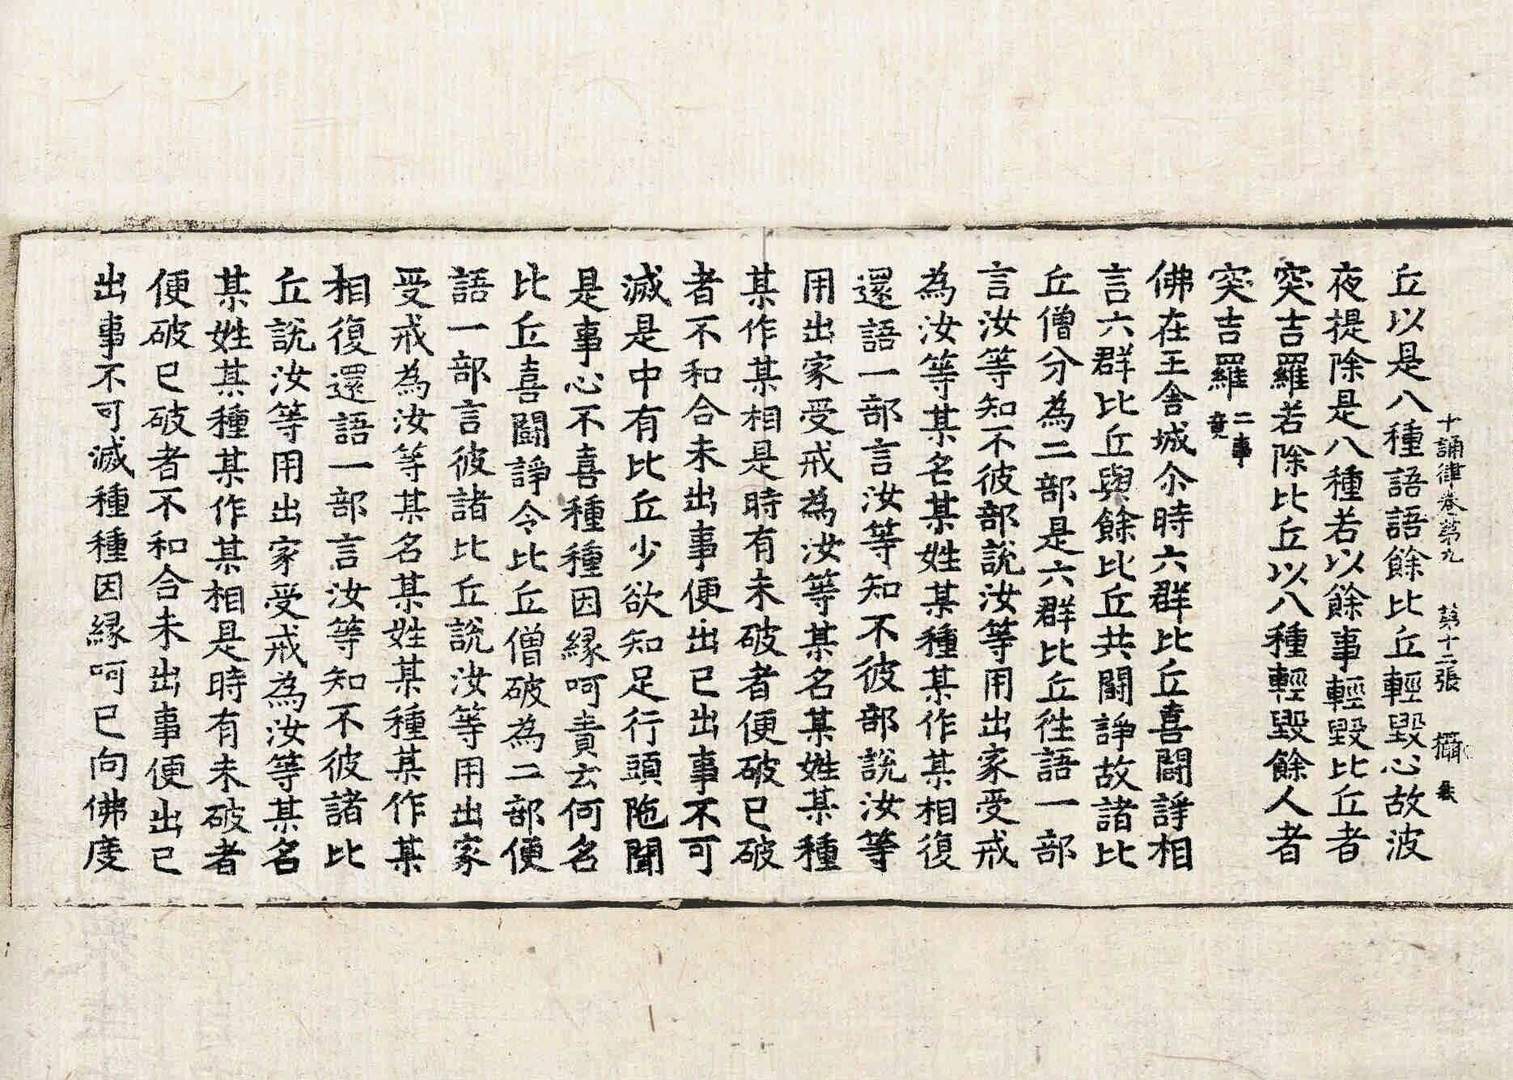 十誦律卷第九 第十二張 攝
丘以是八種語語餘比丘輕毀心故波
夜提除是八種若以餘事輕毀比丘者
突吉羅若除比丘以八種輕毀餘人者
突吉羅二事竟
佛在王舍城尒時六群比丘喜鬪諍相
言六群比丘與餘比丘共鬪諍故諸比
丘僧分為二部是六群比丘徃語一部
言汝等知不彼部說汝等用出家受戒
為汝等某名某姓某種某作某相復
還語一部言汝等知不彼部說汝等
用出家受戒為汝等某名某姓某種
某作某相是時有未破者便破已破
者不和合未出事便出已出事不可
滅是中有比丘少欲知足行頭陁聞
是事心不喜種種因緣呵責云何名
比丘喜鬪諍令比丘僧破為二部便
語一部言彼諸比丘說汝等用出家
受戒為汝等某名某姓某種某作某
相復還語一部言汝等知不彼諸比
丘說汝等用出家受戒為汝等某名
某姓某種某作某相是時有未破者
便破已破者不和合未出事便出已
出事不可滅種種因緣呵已向佛廣